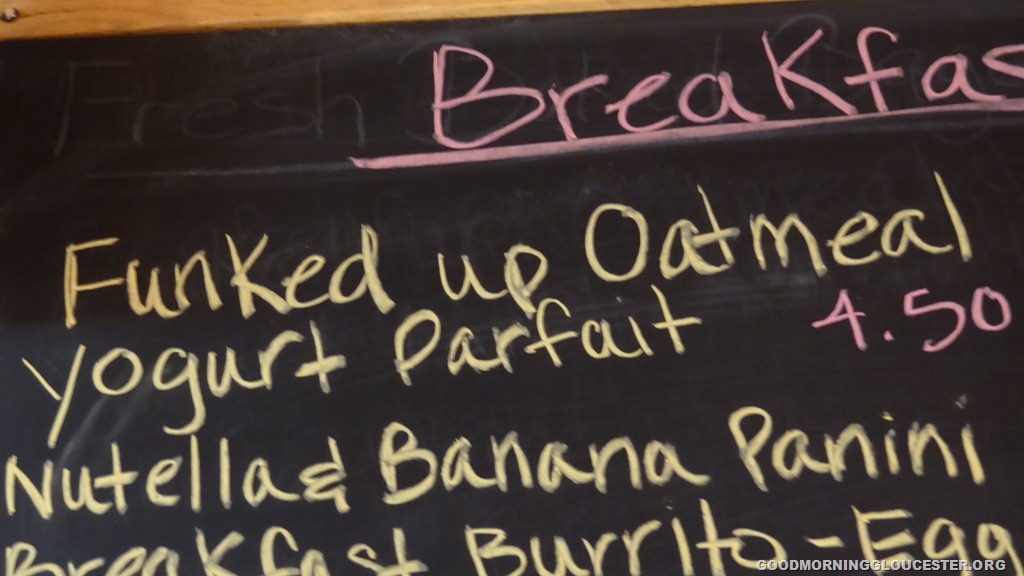 Fresh
Breakfas
Funked up Oatmeal
Yogurt Parfait 4.50
Nutella & Banana Panini
Breakfast Burrito - Egg
GOODMORNINGGLOUCESTER.ORG